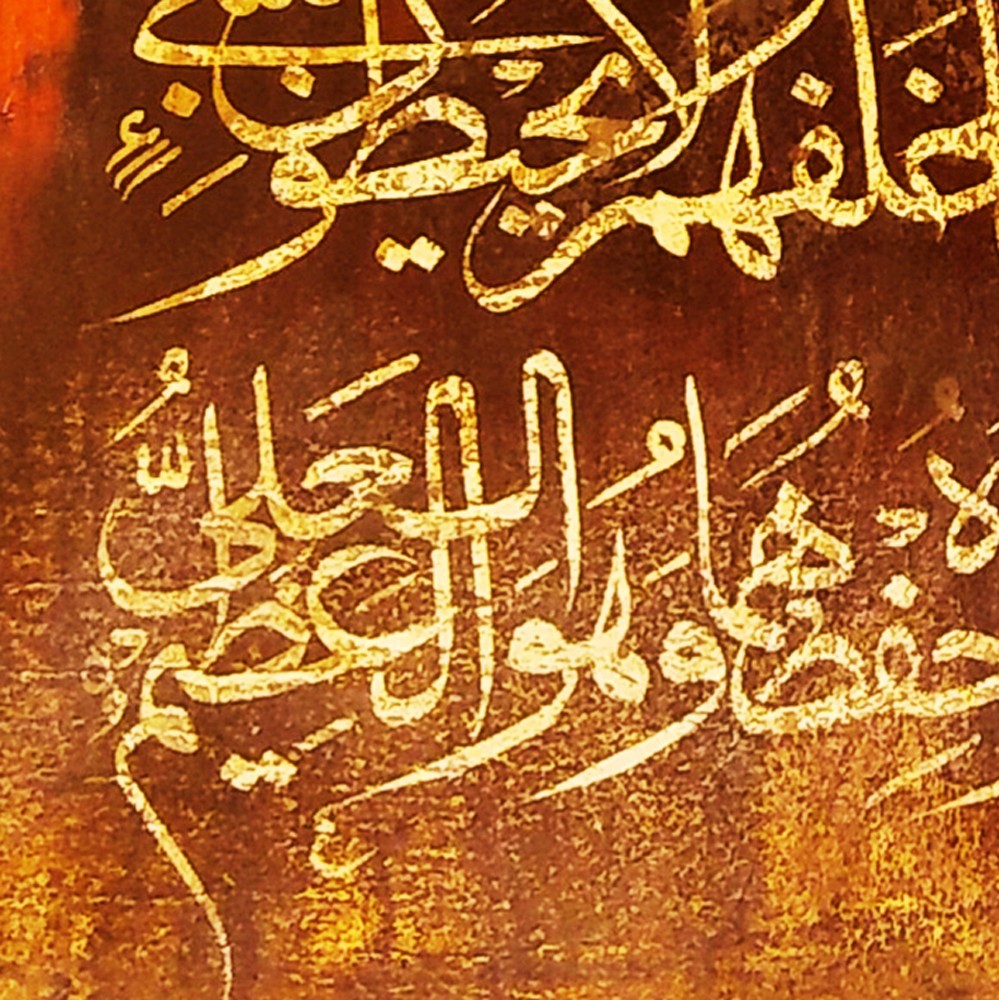 خلفهم لا يحيطون بشي
حفظهما وهو العلي العظيم